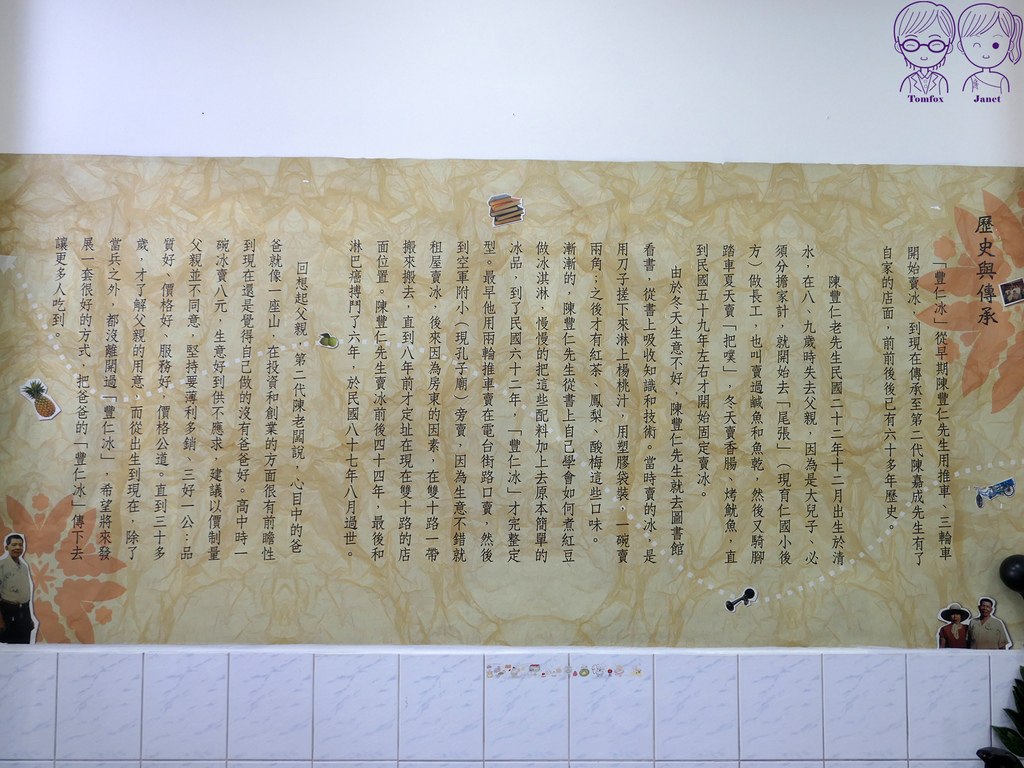 歷史與傳承
「豐仁冰」從早期陳豐仁先生用推車、三輪車
開始賣冰，到現在傳承至第二代陳嘉成先生有了
自家的店面，前前後後已有六十多年歷史。
陳豐仁老先生民國二十二年十二月出生於清
水，在八、九歲時失去父親，因為是大兒子、必
須分擔家計，就開始去「尾張」（現育仁國小後
方）做長工，也叫賣過鹹魚和魚乾，然後又騎腳
踏車夏天賣「把噗」，冬天賣香腸、烤魷魚，直
到民國五十九年左右才開始固定賣冰。
由於冬天生意不好，陳豐仁先生就去圖書館
看書，從書上吸收知識和技術。當時賣的冰，是
用刀子搓下來淋上楊桃汁，用塑膠袋裝，一碗賣
兩角；之後才有紅茶、鳳梨、酸梅這些口味。
漸漸的，陳豐仁先生從書上自己學會如何煮紅豆
做冰淇淋，慢慢的把這些配料加上去原本簡單的
冰品，到了民國六十二年，「豐仁冰」才完整定
型。最早他用兩輪推車賣在電台街路口賣，然後
到空軍附小（現孔子廟）旁賣，因為生意不錯就
租屋賣冰，後來因為房東的因素，在雙十路一帶
搬來搬去，直到八年前才定址在現在雙十路的店
面位置。陳豐仁先生賣冰前後四十四年，最後和
淋巴癌搏鬥了六年，於民國八十七年八月過世。
回想起父親，第二代陳老闆說，心目中的爸
爸就像一座山，在投資和創業的方面很有前瞻性
到現在還是覺得自己做的沒有爸爸好。高中時一
碗冰賣八元，生意好到供不應求，建議以價制量
父親並不同意，堅持要薄利多銷、三好一公：品
質好、價格好、服務好，價格公道。直到三十多
歲，才了解父親的用意，而從出生到現在，除了
當兵之外，都沒離開過「豐仁冰」，希望將來發
展一套很好的方式，把爸爸的「豐仁冰」傳下去
讓更多人吃到。
Tomfox
Janet